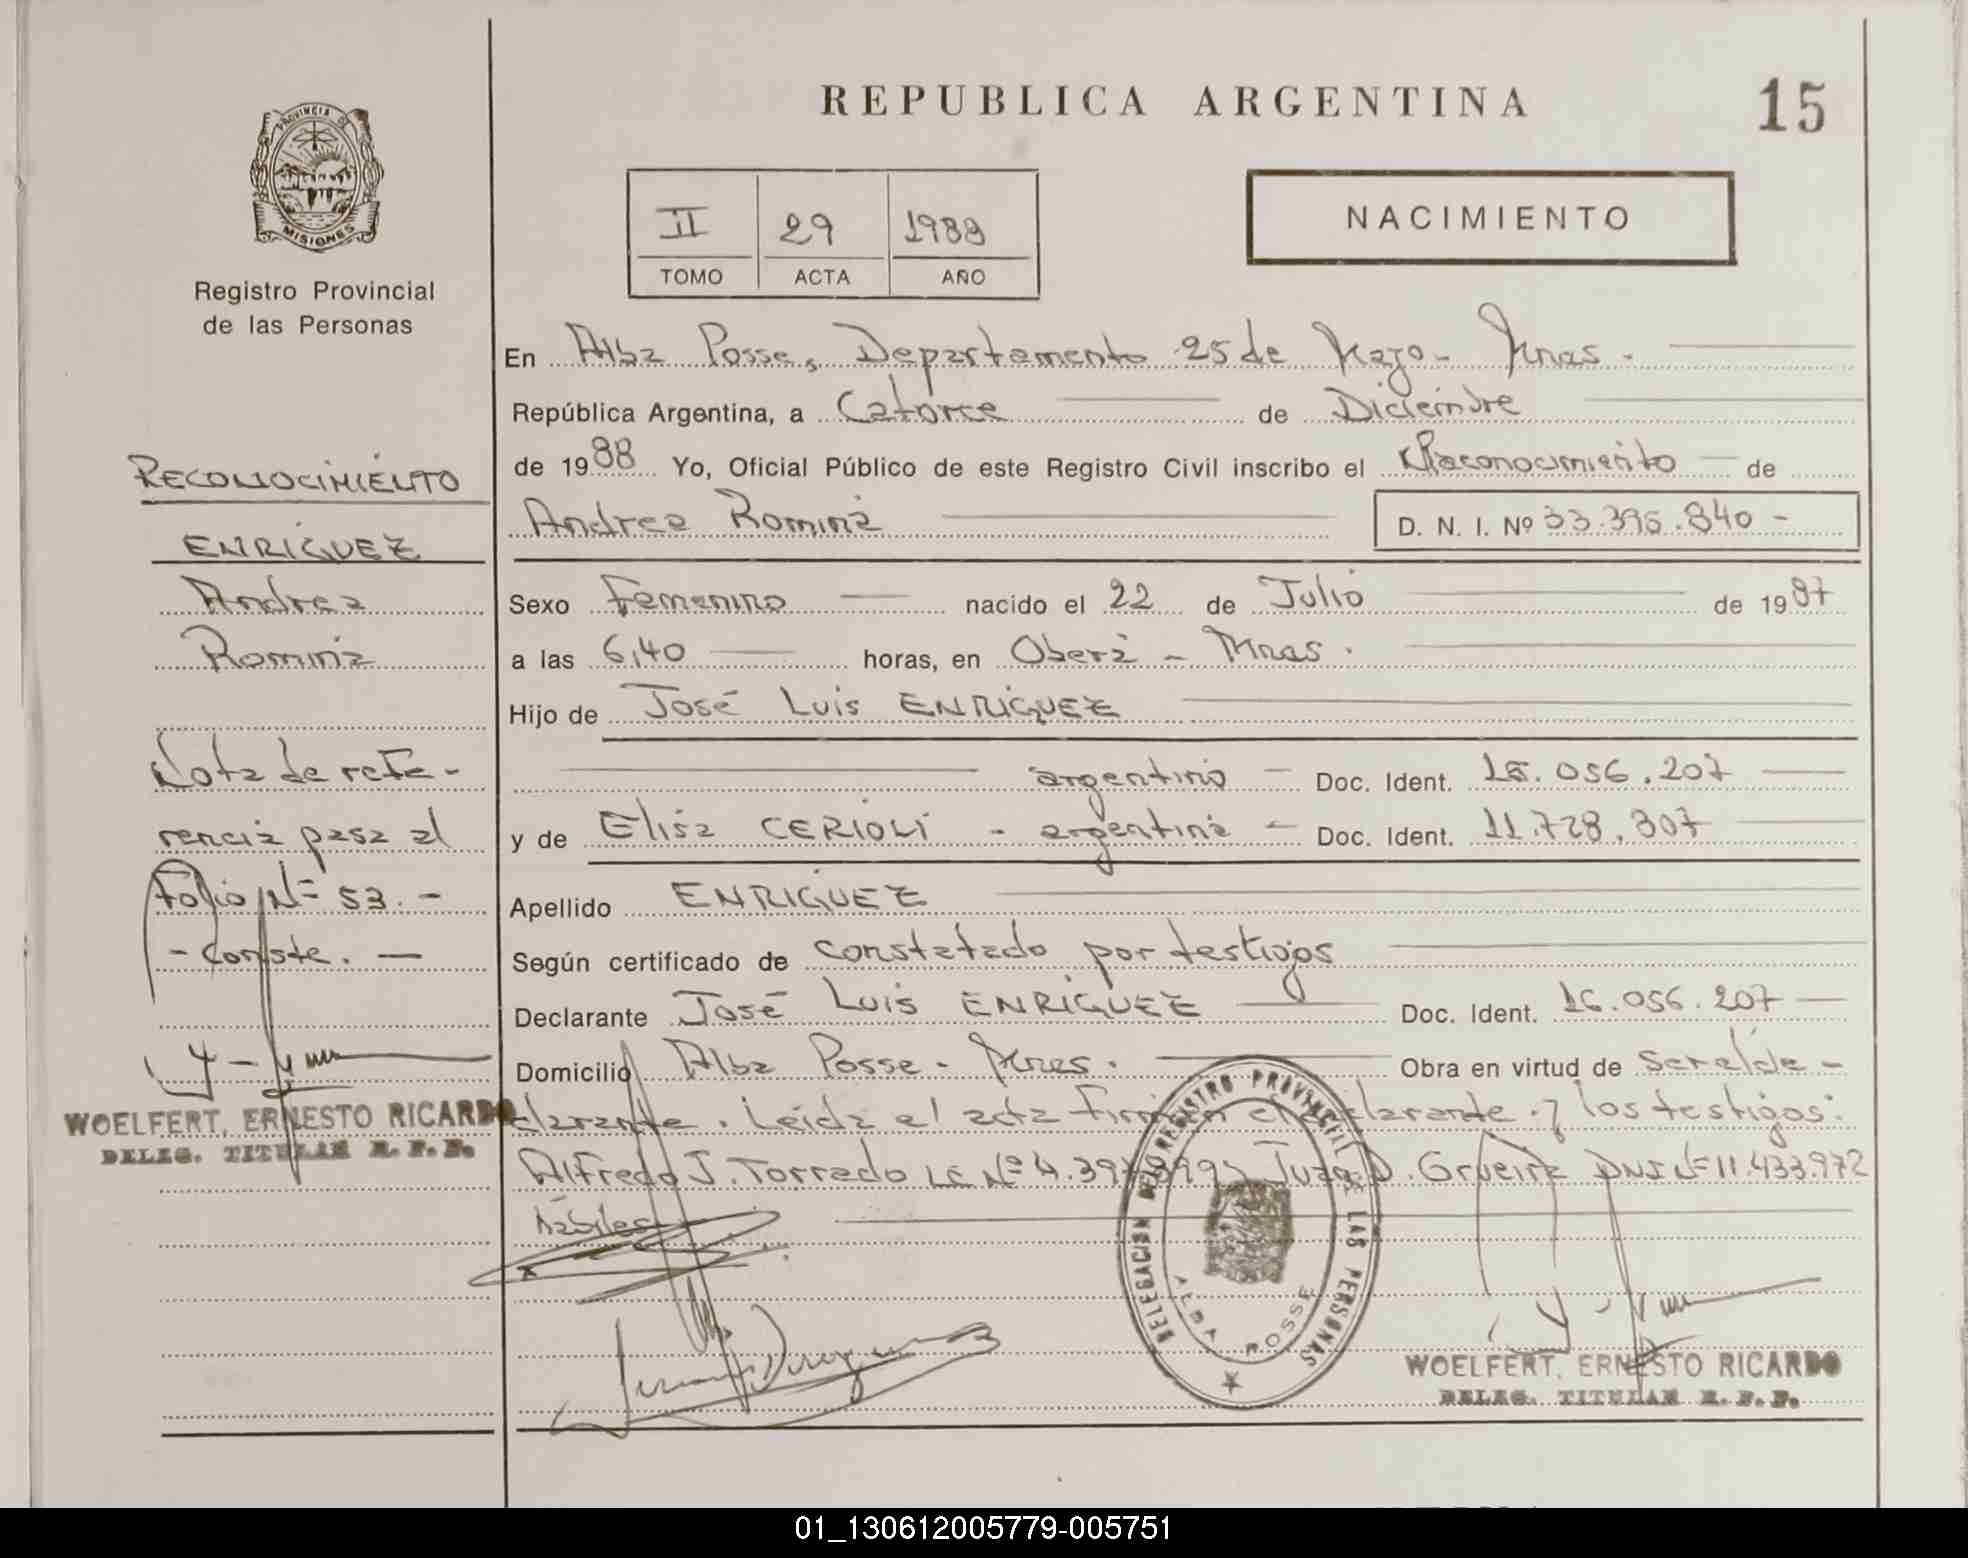 REPUBLICA ARGENTINA
15
PROVINCIA DE
MISIONES
Registro Provincial
de las Personas
II 29 1988
TOMO ACTA AÑO
NACIMIENTO
En Alba Posse, Departamento 25 de Mayo - Mnas.
República Argentina, a Catorce de Diciembre
de 1988 Yo, Oficial Público de este Registro Civil inscribo el Reconocimiento de
Andrea Romina D. N. I. Nº 33.396.840 -
Sexo Femenino nacido el 22 de Julio de 1987
a las 6,40 horas, en Oberá - Mnas.
Hijo de José Luis ENRIQUEZ
argentino - Doc. Ident. 16.056.207
y de Elisa CERIOLI - argentina - Doc. Ident. 11.728.307
Apellido ENRIQUEZ
Según certificado de constatado por testigos
Declarante José Luis ENRIQUEZ Doc. Ident. 16.056.207
Domicilio Alba Posse - Mnes. Obra en virtud de ser el de-
clarante. Leída el acta firman el declarante y los testigos:
Alfredo J. Torredo LE Nº 4.39 Juan D. DNI Nº 11.433.972
hábiles
RECONOCIMIENTO
ENRIQUEZ
Andrea
Romina
Nota de refe-
rencia pasa al
Folio Nº 53. -
- Conste. -
WOELFERT, ERNESTO RICARDO
DELEG. TITULAR R. P. P.
DELEGACION DEL REGISTRO PROVINCIAL DE LAS PERSONAS
ALBA POSSE
WOELFERT, ERNESTO RICARDO
DELEG. TITULAR R. P. P.
01_130612005779-005751